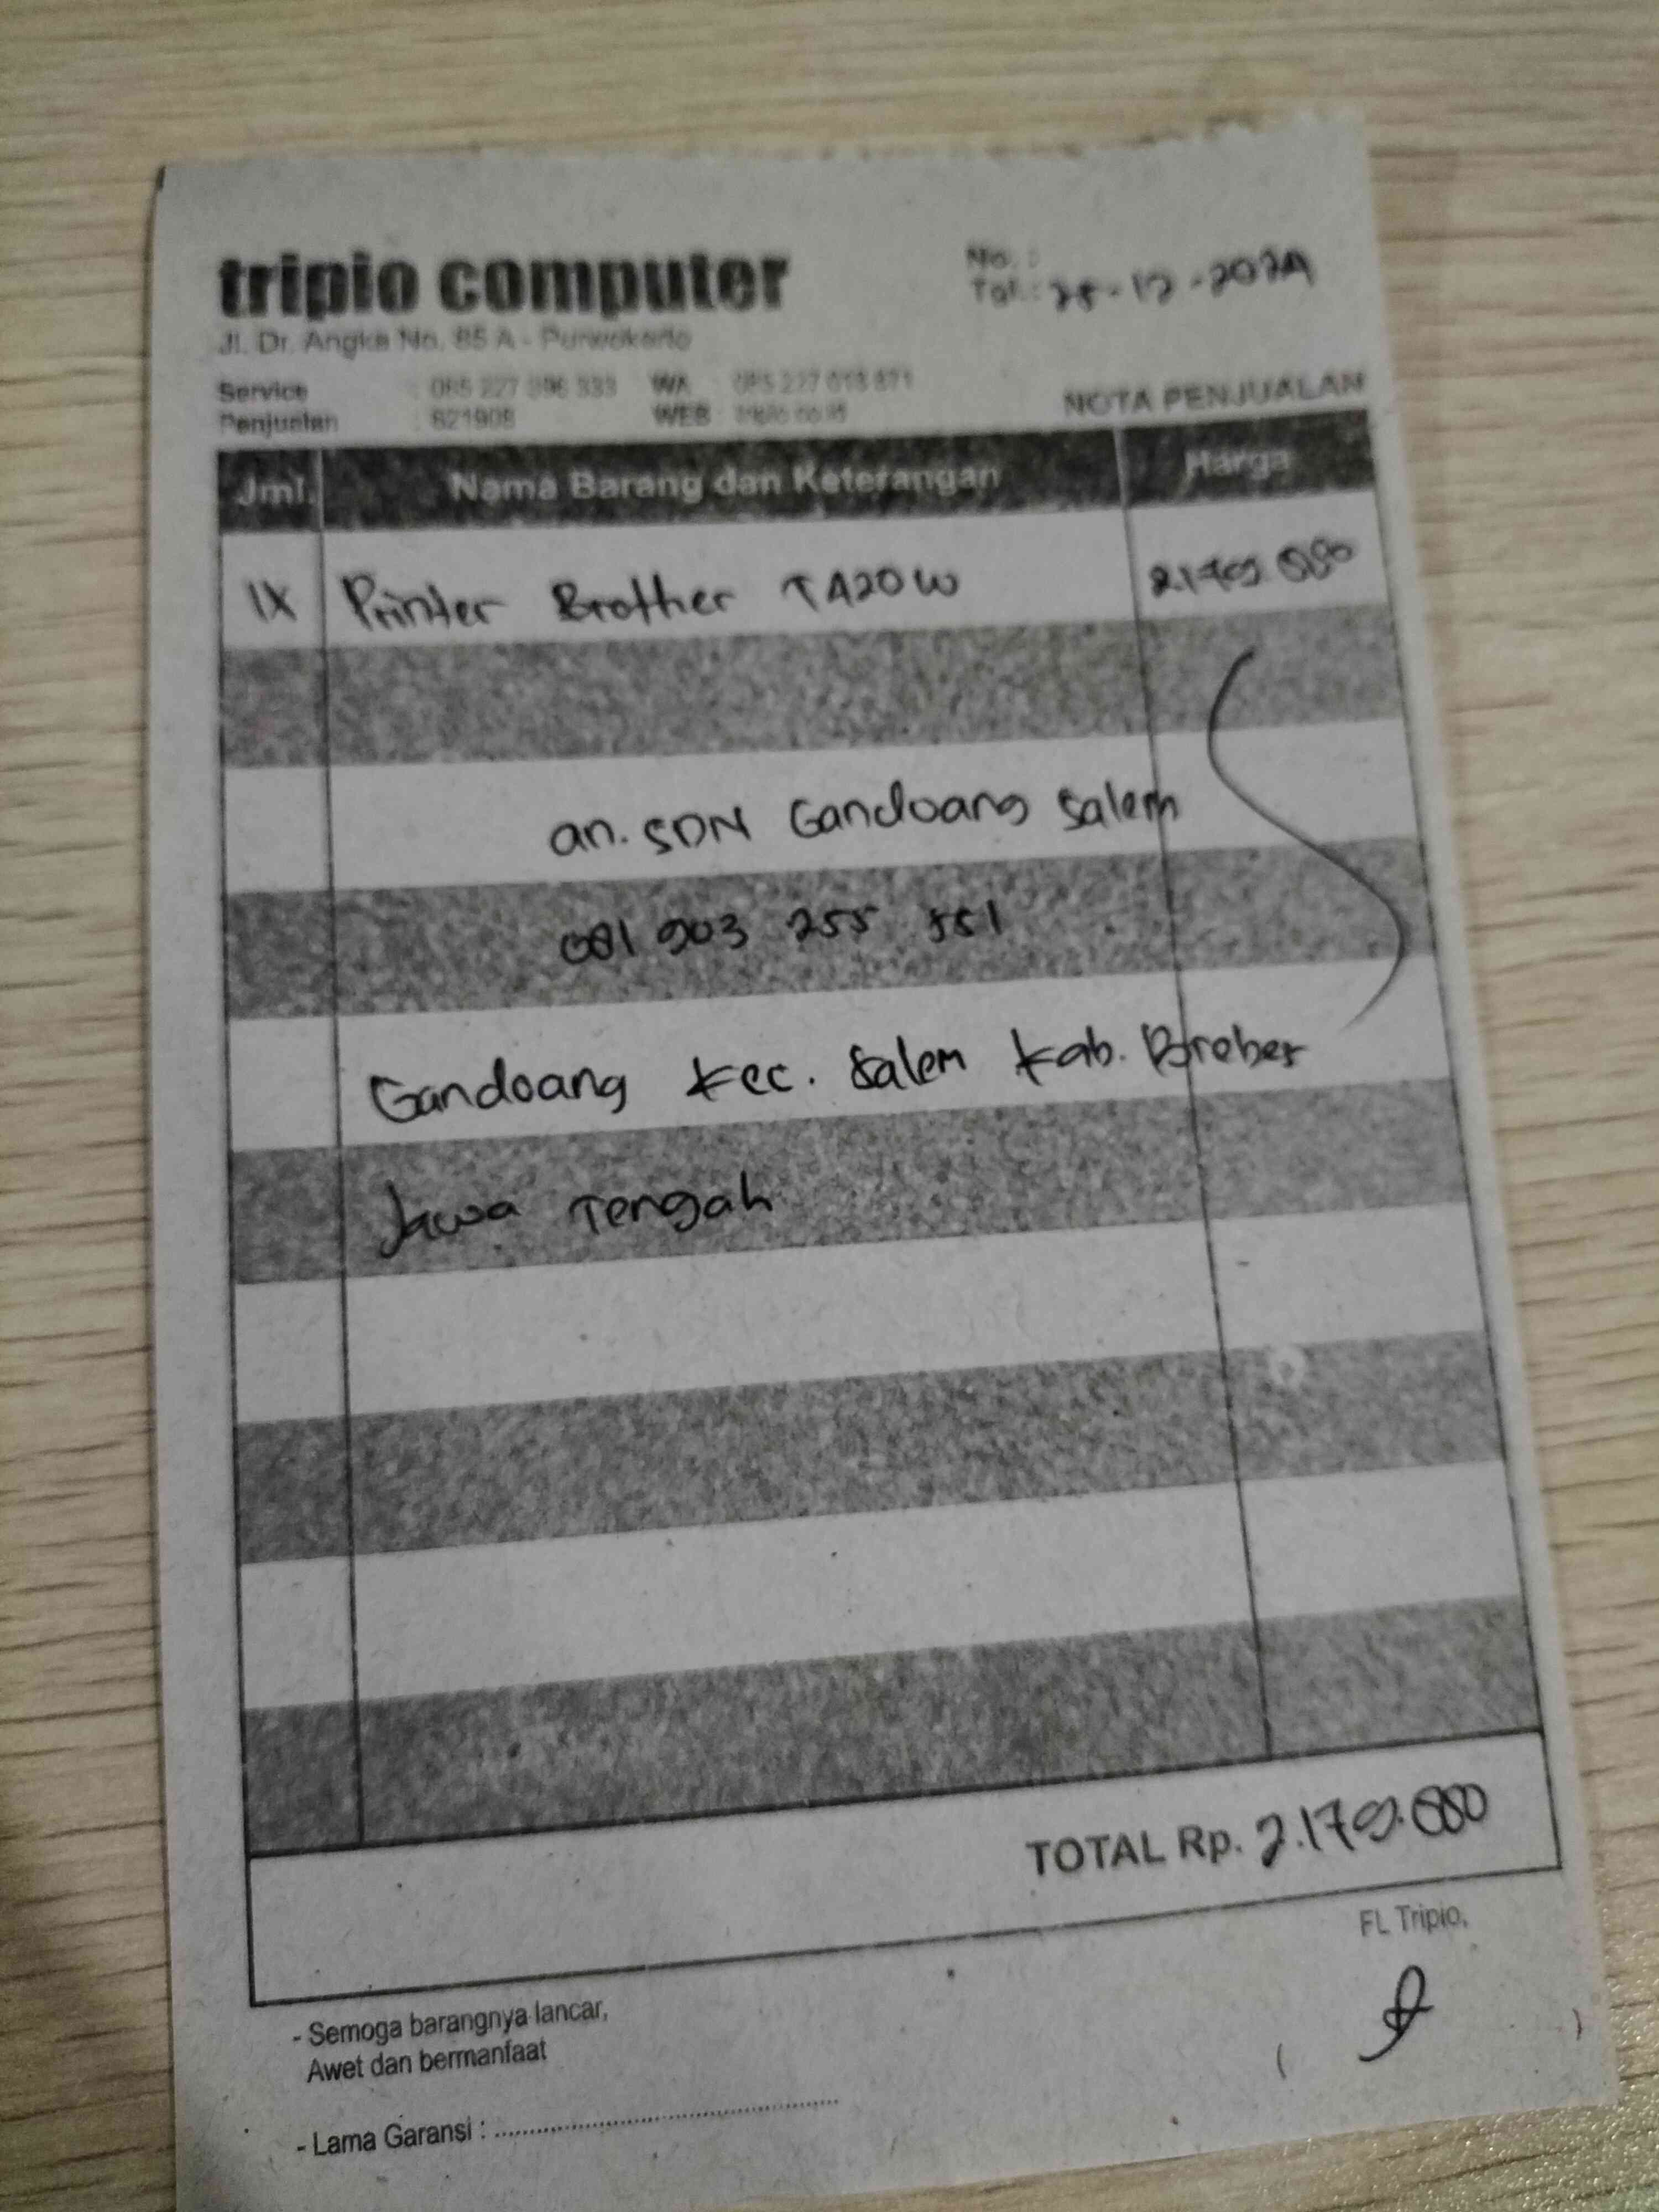 tripio computer
No. :
Tgl. : 28-12-2024
Jl. Dr. Angka No. 85 A - Purwokerto
Service : 085 227 WA : 085 227
Penjualan : 621908 WEB :
NOTA PENJUALAN
Jml. Nama Barang dan Keterangan Harga
1X Printer Brother T420W
an. SDN Gandoang Salem
081 903 255 551
Gandoang Kec. Salem Kab. Brebes
Jawa Tengah
TOTAL Rp. 2.179.000
FL Tripio,
- Semoga barangnya lancar,
Awet dan bermanfaat
- Lama Garansi :